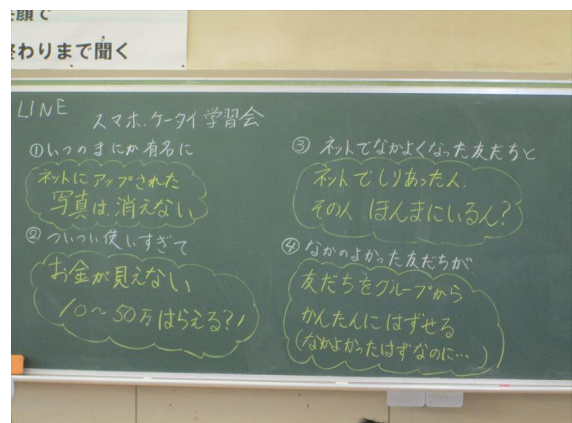 顔で
終わりまで聞く
LINE
スマホ、ケータイ学習会
①いつのまにか有名に
ネットにアップされた
写真は消えない
②ついつい使いすぎて
お金が見えない
10～50万はらえる？！
③ネットでなかよくなった友だちと
ネットでしりあった人.
その人 ほんまにいるん？
④なかのよかった友だちが
友だちをグループから
かんたんにはずせる
(なかよかったはずなのに…)